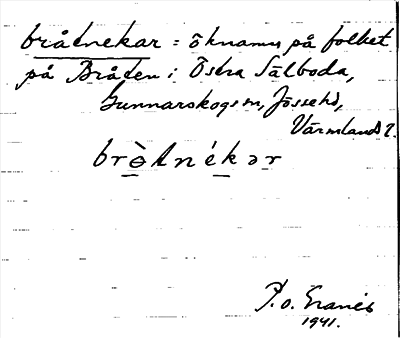 bråtnekar = öknamn på folket
på Bråten i Östra Sälboda,
Gunnarskogs sn, Jösse hd,
Värmlands l.
brὸtnékər
P. o. Granér
1941.